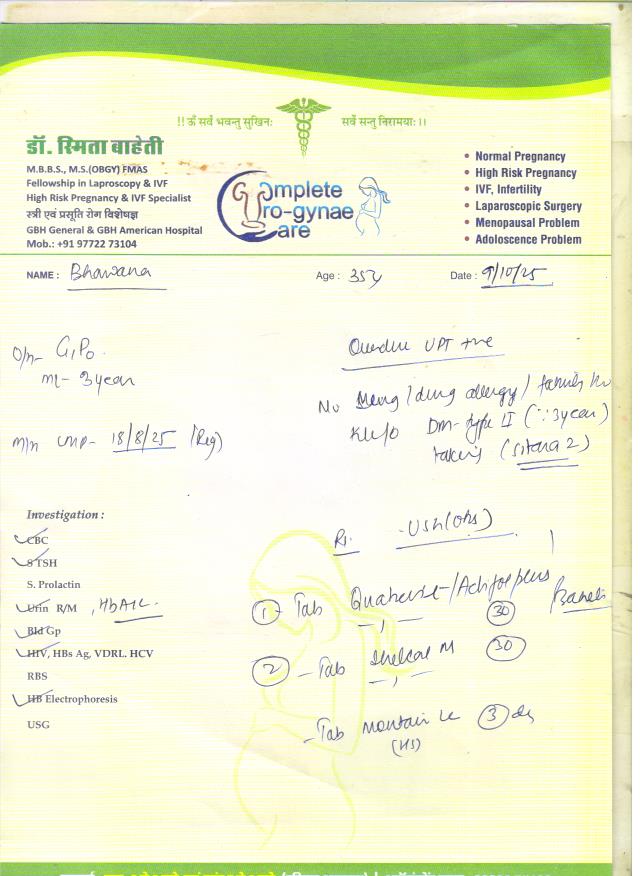 !! ॐ सर्वे भवन्तु सुखिनः सर्वे सन्तु निरामयाः ।।
डॉ. स्मिता बाहेती
M.B.B.S., M.S.(OBGY) FMAS
Fellowship in Laproscopy & IVF
High Risk Pregnancy & IVF Specialist
स्त्री एवं प्रसूति रोग विशेषज्ञ
GBH General & GBH American Hospital
Mob.: +91 97722 73104
Complete
Uro-gynae
Care
• Normal Pregnancy
• High Risk Pregnancy
• IVF, Infertility
• Laparoscopic Surgery
• Menopausal Problem
• Adoloscence Problem
NAME : Bhawana Age : 35y Date : 9/10/25
O/n- G1P0
ml- 3 year
Overdue UPT +ve
No /drug allergy/ family
K/c/o Dm-type II (∵ 3 year)
taking (sitara 2)
m/n LMP- 18/8/25 (Reg)
Investigation :
CBC
S TSH
S. Prolactin
Urin R/M , HbA1c
Bld Gp
HIV, HBs Ag, VDRL. HCV
RBS
HB Electrophoresis
USG
Rx. - USG (Obs)
1 - Tab 30
2 - Tab Shelcal M 30
- Tab 3 day
(HS)